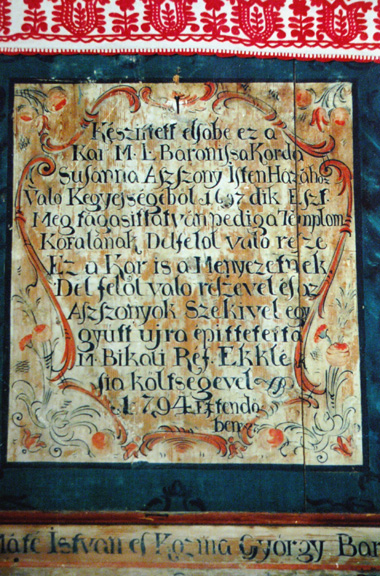 Készittett elsöbe ez a
Kar M. L. Baronissa Korda
Susánna Aszszony Isten Házához
Való Kegyességéböl 1697dik Eszt.
Meg tágasittatván pedig a Templom
Kőfalának Délfelöl való része
Ez a Kar is a Menyezetnek
Délfelöl való részével és az
Aszszonyok Székivel egy
gyütt ujra épittetett a
M. Bikali Ref. Ekklé
sia költségével
1794 esztendő
ben
Máté István és Kozma György Bar